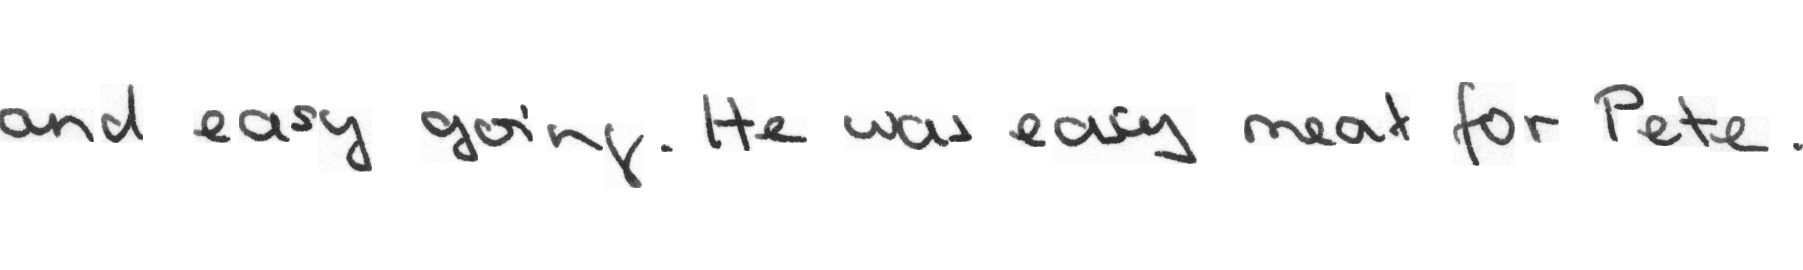 and easy going. He was easy meat for Pete.